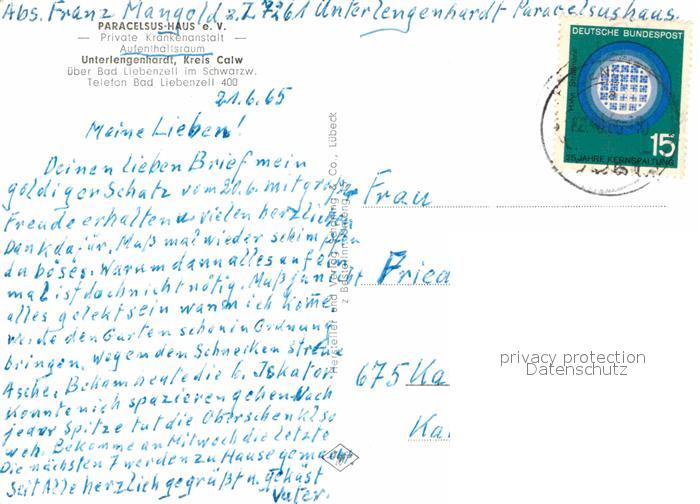 Abs. Franz Mangold z.Z. 7261 Unterlengenhardt Paracelsushaus.
PARACELSUS-HAUS e. V.
— Private Krankenanstalt —
Aufenthaltsraum
Unterlengenhardt, Kreis Calw
über Bad Liebenzell im Schwarzw.
Telefon Bad Liebenzell 400
21.6.65
Meine Lieben!
Deinen lieben Brief mein
goldiger Schatz vom 20.6. mit großer
Freude erhalten u. vielen herzlichen
Dank dafür. Muß mal wieder schimpfen
du böses. Warum dann alles auf ein
mal ist doch nicht nötig. Muß ja nicht
alles geleckt sein wann ich komme
werde den Garten schon in Ordnung
bringen. Wegen den Schnecken streue
Asche. Bekam heute die 6. Iskator
konnte nich spazieren gehen. Nach
jeder Spitze tut die Oberschenkl so
weh. Bekomme am Mittwoch die letzte
Die nächsten 7 werden zu Hause gemacht
Seit Alle herzlich gegrüßt u. geküst
Vater.
DEUTSCHE BUNDESPOST
15
25 JAHRE KERNSPALTUNG
Frau
Fried
675 Ka
Ka
privacy protection
Datenschutz